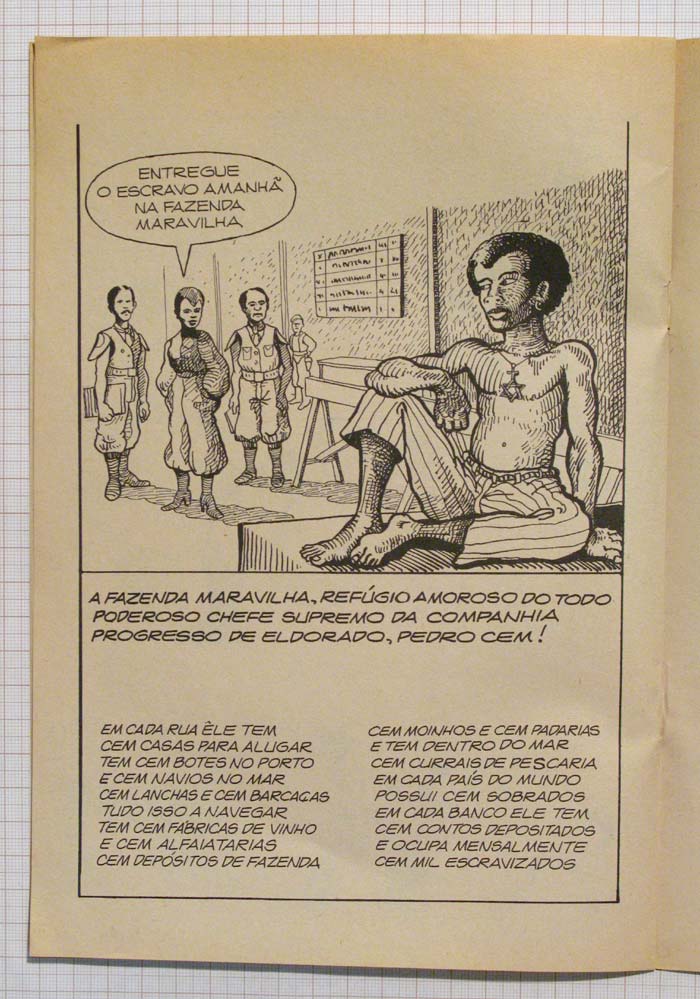 ENTREGUE
O ESCRAVO AMANHÃ
NA FAZENDA
MARAVILHA
A FAZENDA MARAVILHA, REFÚGIO AMOROSO DO TODO
PODEROSO CHEFE SUPREMO DA COMPANHIA
PROGRESSO DE ELDORADO, PEDRO CEM!
EM CADA RUA ÊLE TEM
CEM CASAS PARA ALUGAR
TEM CEM BOTES NO PORTO
E CEM NAVIOS NO MAR
CEM LANCHAS E CEM BARCAÇAS
TUDO ISSO A NAVEGAR
TEM CEM FÁBRICAS DE VINHO
E CEM ALFAIATARIAS
CEM DEPÓSITOS DE FAZENDA
CEM MOINHOS E CEM PADARIAS
E TEM DENTRO DO MAR
CEM CURRAIS DE PESCARIA
EM CADA PAÍS DO MUNDO
POSSUI CEM SOBRADOS
EM CADA BANCO ELE TEM
CEM CONTOS DEPOSITADOS
E OCUPA MENSALMENTE
CEM MIL ESCRAVIZADOS